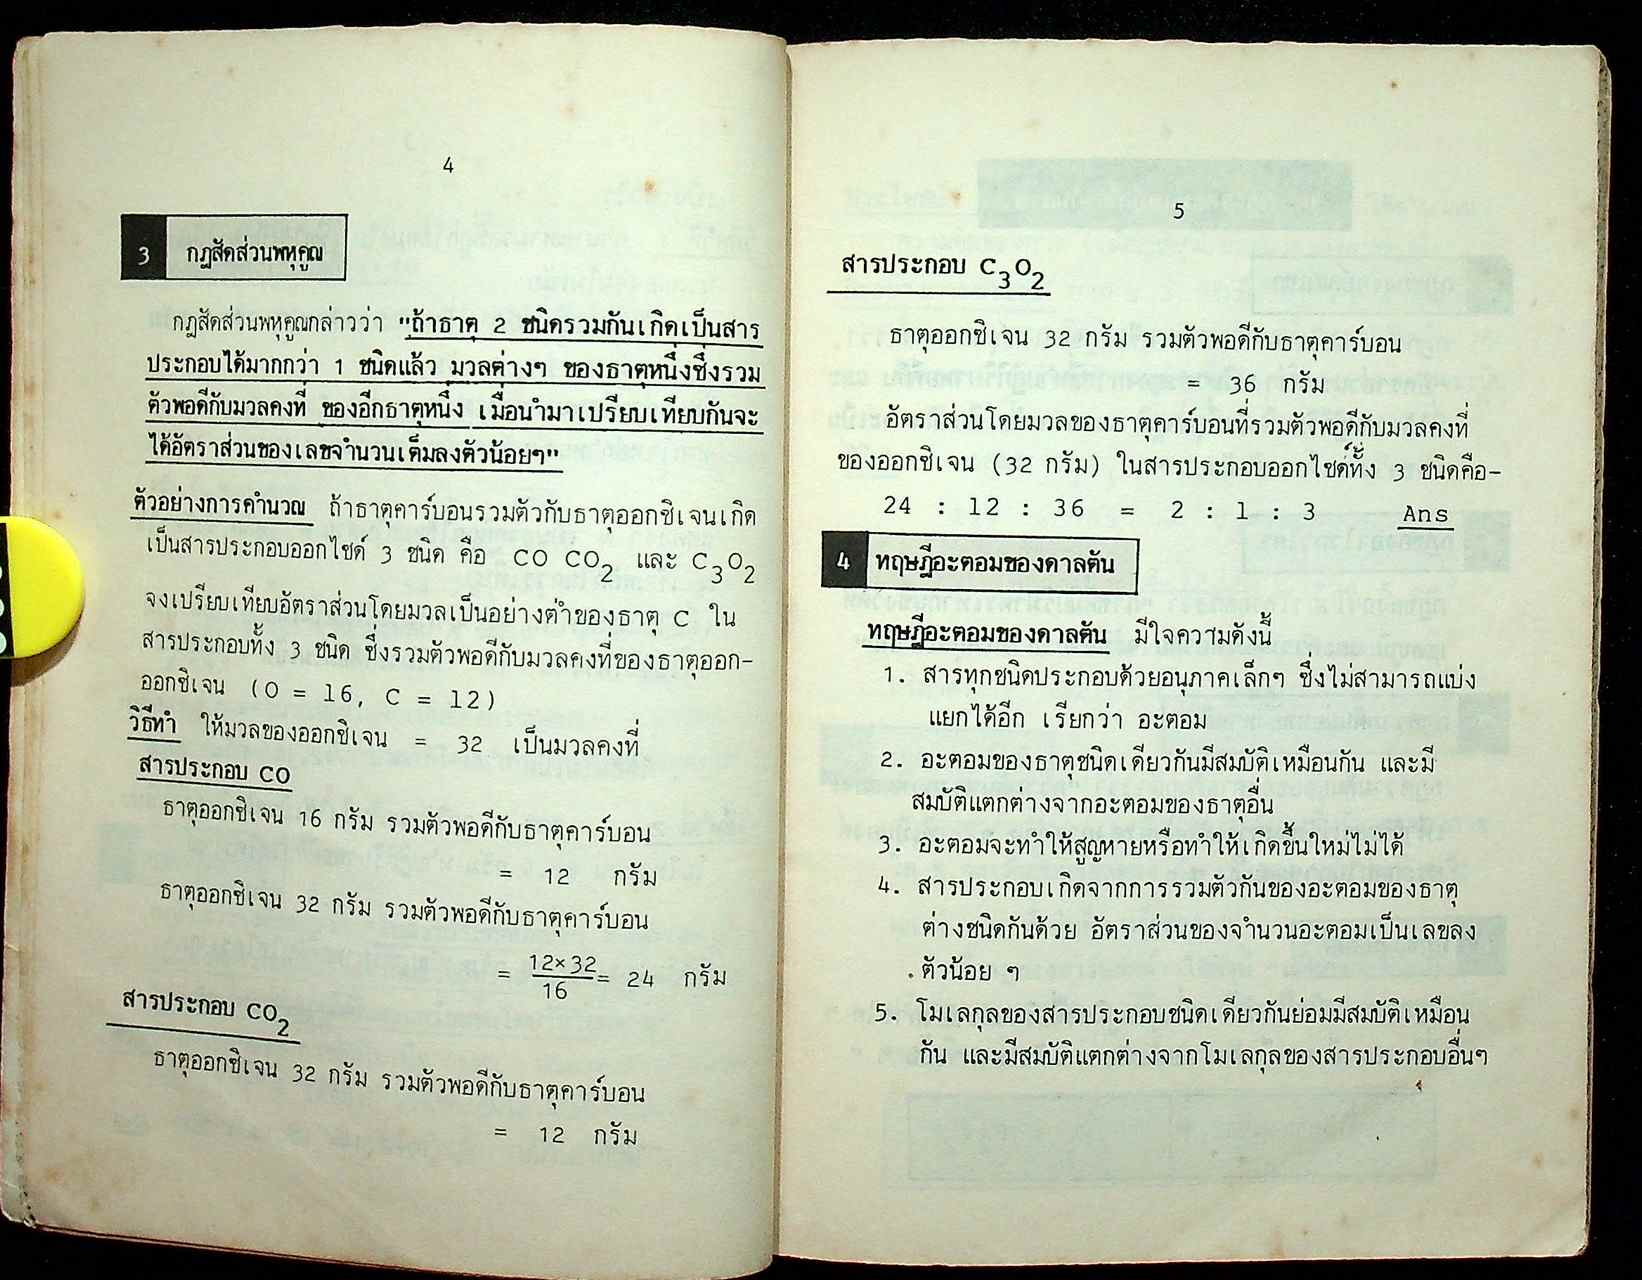 4
3 กฎสัดส่วนพหุคูณ
กฎสัดส่วนพหุคูณกล่าวว่า "ถ้าธาตุ 2 ชนิดรวมกันเกิดเป็นสาร
ประกอบได้มากกว่า 1 ชนิดแล้ว มวลต่างๆ ของธาตุหนึ่งซึ่งรวม
ตัวพอดีกับมวลคงที่ ของอีกธาตุหนึ่ง เมื่อนำมาเปรียบเทียบกันจะ
ได้อัตราส่วนของเลขจำนวนเต็มลงตัวน้อยๆ"
ตัวอย่างการคำนวณ ถ้าธาตุคาร์บอนรวมตัวกับธาตุออกซิเจนเกิด
เป็นสารประกอบออกไซด์ 3 ชนิด คือ CO CO2 และ C3O2
จงเปรียบเทียบอัตราส่วนโดยมวลเป็นอย่างต่ำของธาตุ C ใน
สารประกอบทั้ง 3 ชนิด ซึ่งรวมตัวพอดีกับมวลคงที่ของธาตุออก-
ออกซิเจน (O = 16, C = 12)
วิธีทำ ให้มวลของออกซิเจน = 32 เป็นมวลคงที่
สารประกอบ CO
ธาตุออกซิเจน 16 กรัม รวมตัวพอดีกับธาตุคาร์บอน
= 12 กรัม
ธาตุออกซิเจน 32 กรัม รวมตัวพอดีกับธาตุคาร์บอน
= 12×32/16 = 24 กรัม
สารประกอบ CO2
ธาตุออกซิเจน 32 กรัม รวมตัวพอดีกับธาตุคาร์บอน
= 12 กรัม
5
สารประกอบ C3O2
ธาตุออกซิเจน 32 กรัม รวมตัวพอดีกับธาตุคาร์บอน
= 36 กรัม
อัตราส่วนโดยมวลของธาตุคาร์บอนที่รวมตัวพอดีกับมวลคงที่
ของออกซิเจน (32 กรัม) ในสารประกอบออกไซด์ทั้ง 3 ชนิดคือ-
24 : 12 : 36 = 2 : 1 : 3 Ans
4 ทฤษฎีอะตอมของดาลตัน
ทฤษฎีอะตอมของดาลตัน มีใจความดังนี้
1. สารทุกชนิดประกอบด้วยอนุภาคเล็กๆ ซึ่งไม่สามารถแบ่ง
แยกได้อีก เรียกว่า อะตอม
2. อะตอมของธาตุชนิดเดียวกันมีสมบัติเหมือนกัน และมี
สมบัติแตกต่างจากอะตอมของธาตุอื่น
3. อะตอมจะทำให้สูญหายหรือทำให้เกิดขึ้นใหม่ไม่ได้
4. สารประกอบเกิดจากการรวมตัวกันของอะตอมของธาตุ
ต่างชนิดกันด้วย อัตราส่วนของจำนวนอะตอมเป็นเลขลง
ตัวน้อย ๆ
5. โมเลกุลของสารประกอบชนิดเดียวกันย่อมมีสมบัติเหมือน
กัน และมีสมบัติแตกต่างจากโมเลกุลของสารประกอบอื่นๆ